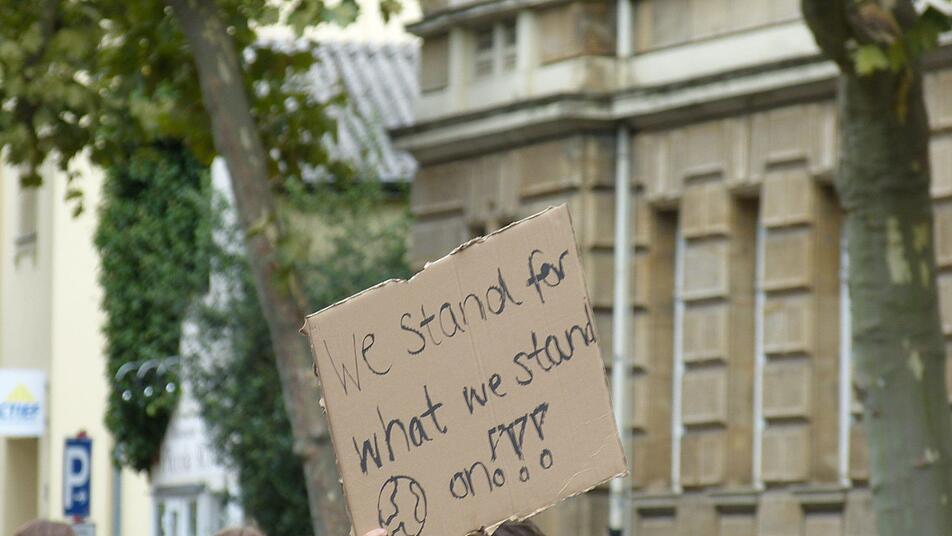 We stand for
what we stand
on!!!
P